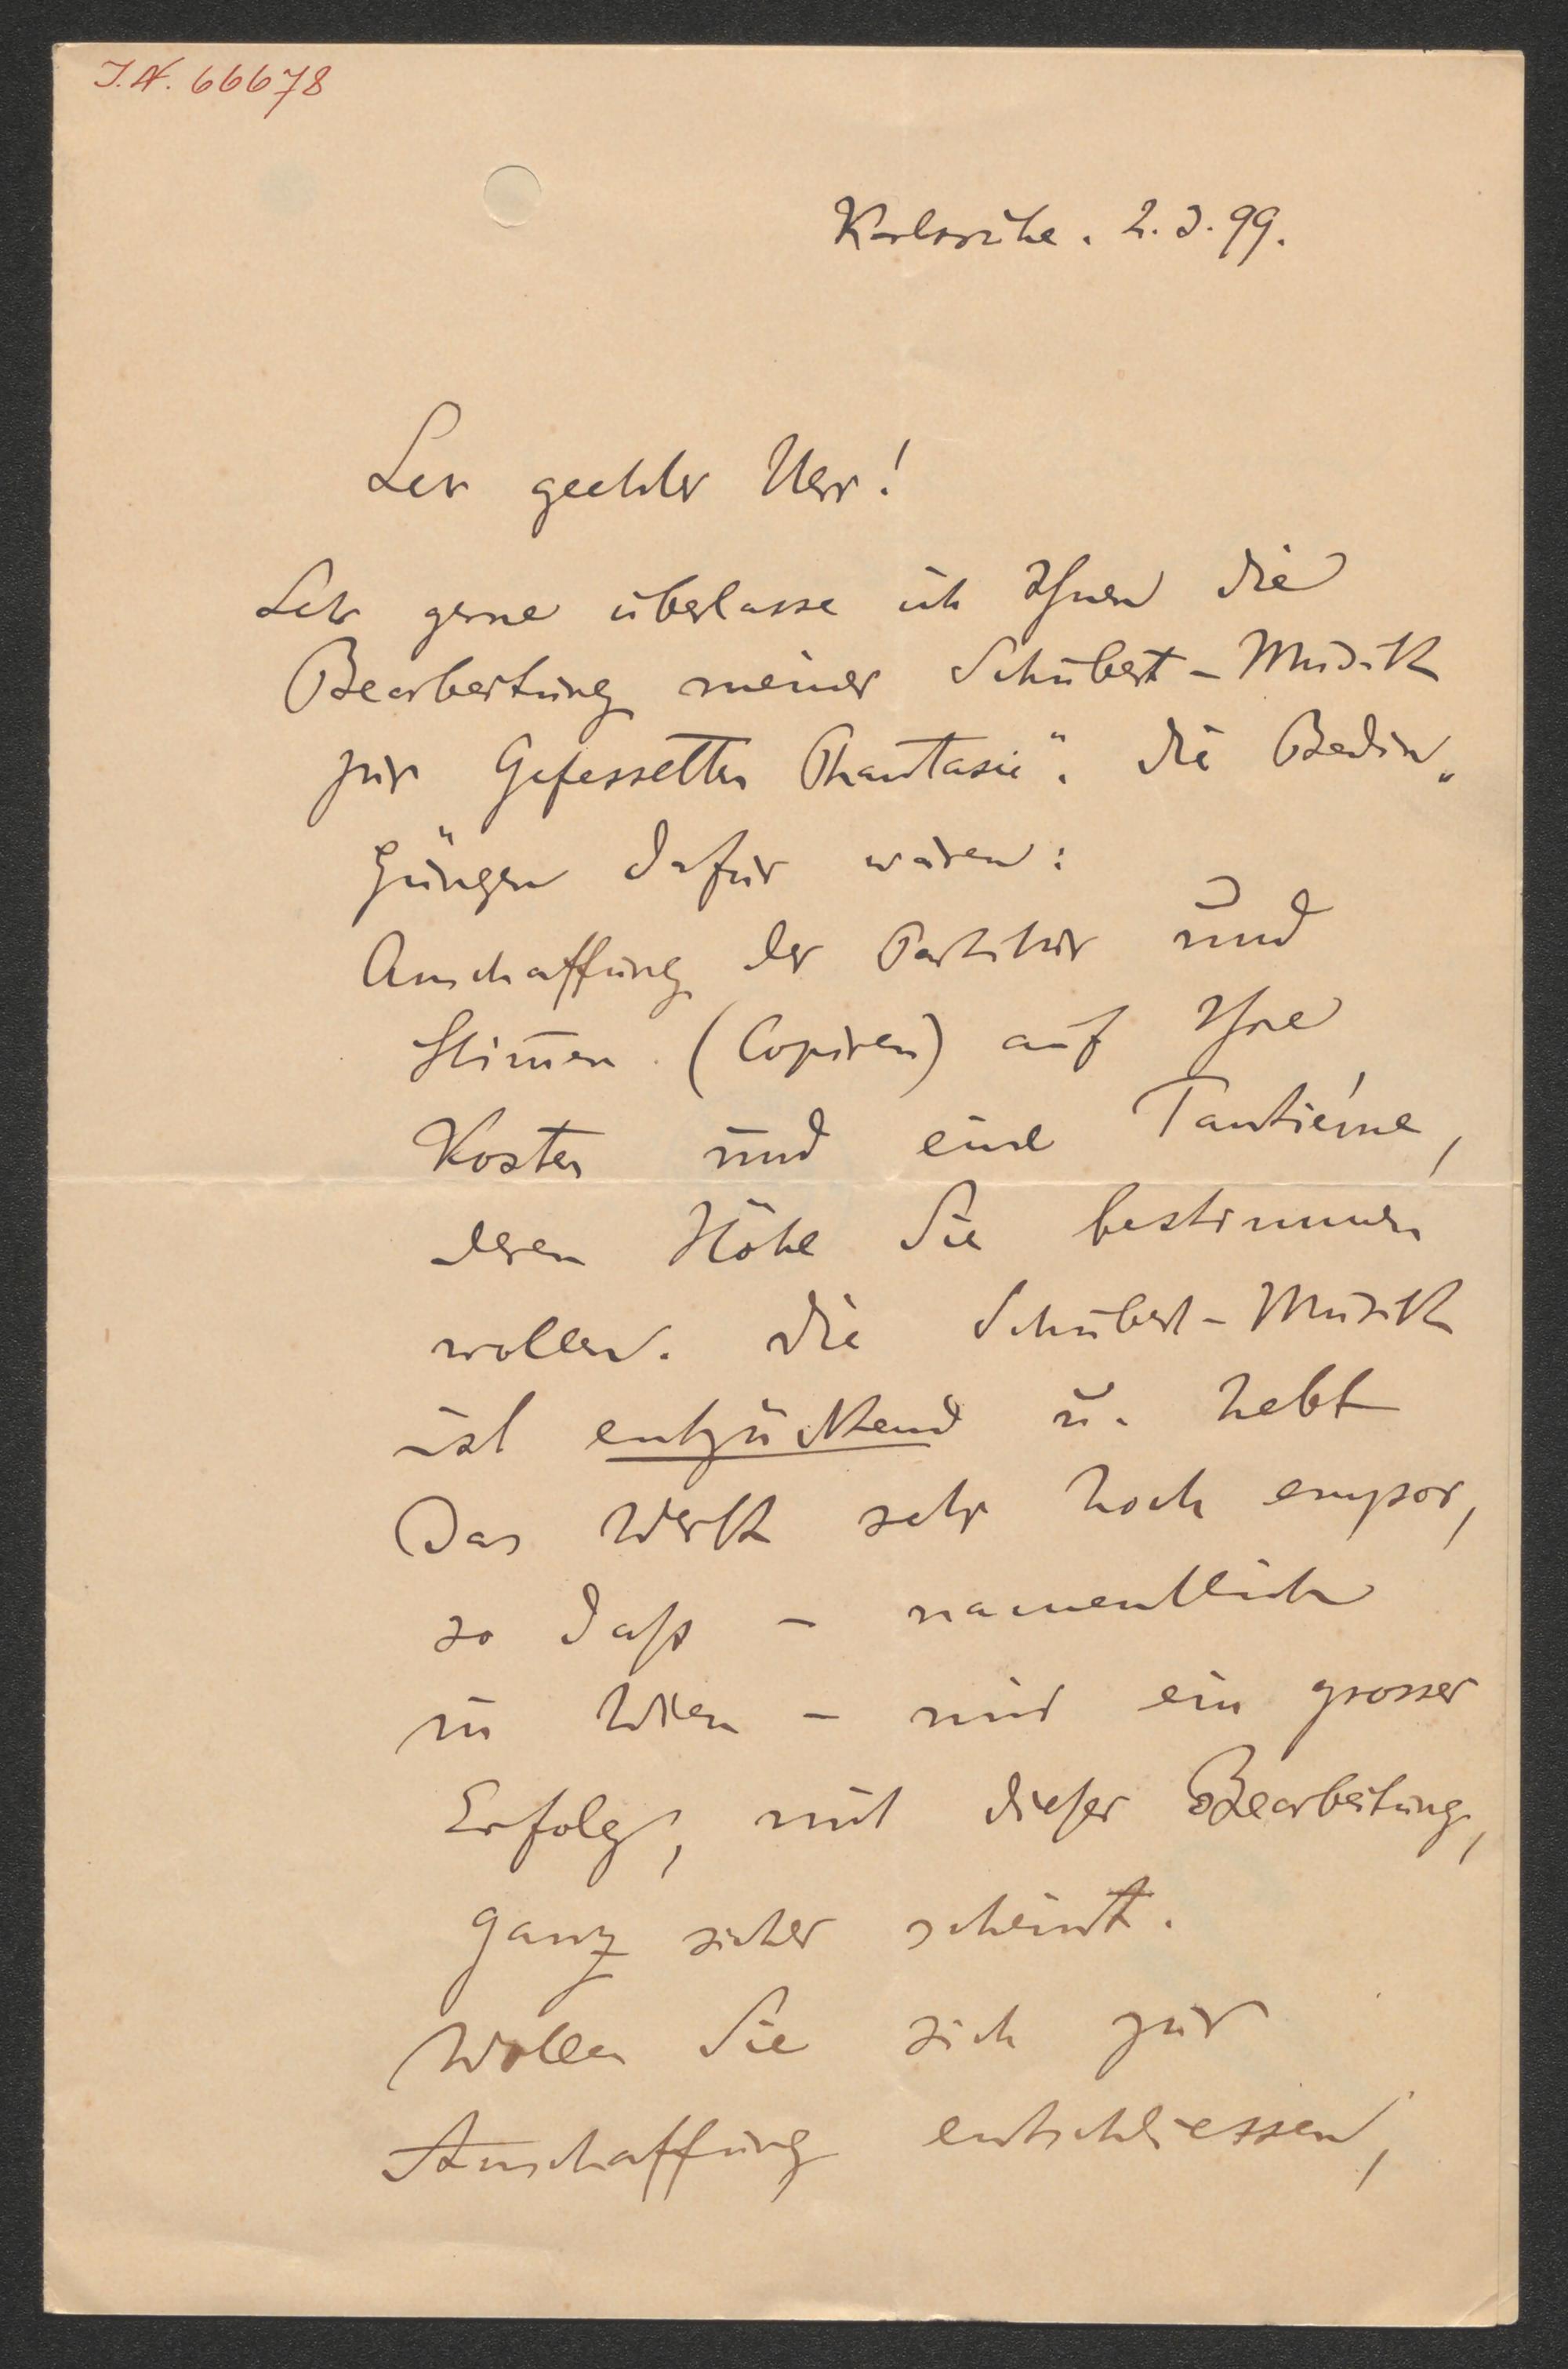 I.N. 66678
Karlsruhe. 2.3.99.
Sehr geehrter Herr!
Sehr gerne überlasse ich Ihnen die
Bearbeitung meiner Schubert-Musik
zur Gefesselten Phantasie". Die Bedin„
gungen dafür wären:
Anschaffung der Partitur und
Stimmen (Copiren) auf Ihre
Kosten und eine Tantième,
deren Höhe Sie bestimmen
wollen. Die Schubert-Musik
ist entzückend u. hebt
Das Werk sehr hoch empor,
so daß – namentlich
in Wien – mir ein grosser
Erfolg, mit dieser Bearbeitung,
ganz sicher scheint.
Wollen Sie sich zur
Anschaffung entschliessen,